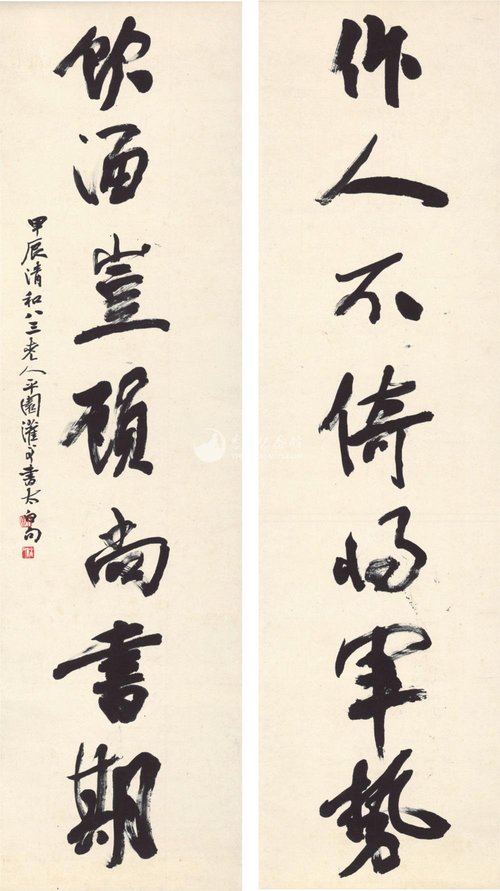 作人不倚將軍勢
飲酒豈顧尚書期
甲辰清和八三老人平園灌叟書太白句